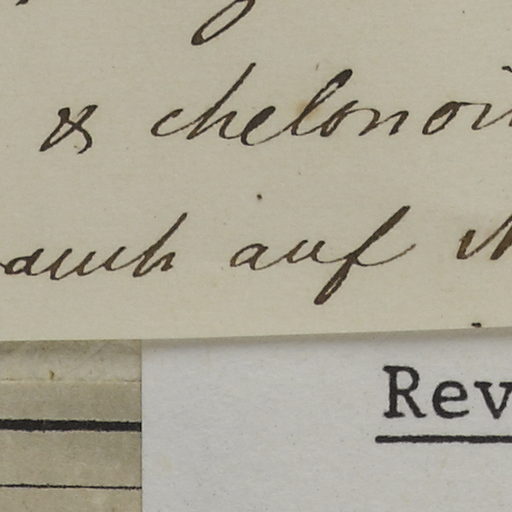 & chelonoi
auch auf
Rev